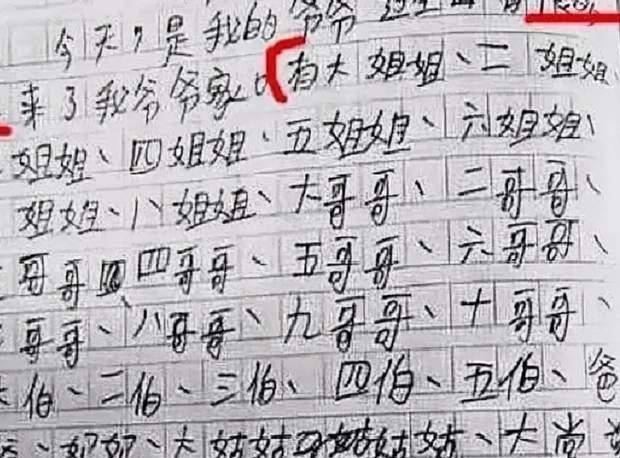 今天，是我的爷爷过生日
来了我爷爷家。有大姐姐、二姐姐
姐姐、四姐姐、五姐姐、六姐姐、
姐姐、八姐姐、大哥哥、二哥哥、
哥哥、四哥哥、五哥哥、六哥哥、
哥哥、八哥哥、九哥哥、十哥哥、
伯、二伯、三伯、四伯、五伯、爸
、奶奶、大姑姑、姑姑、大